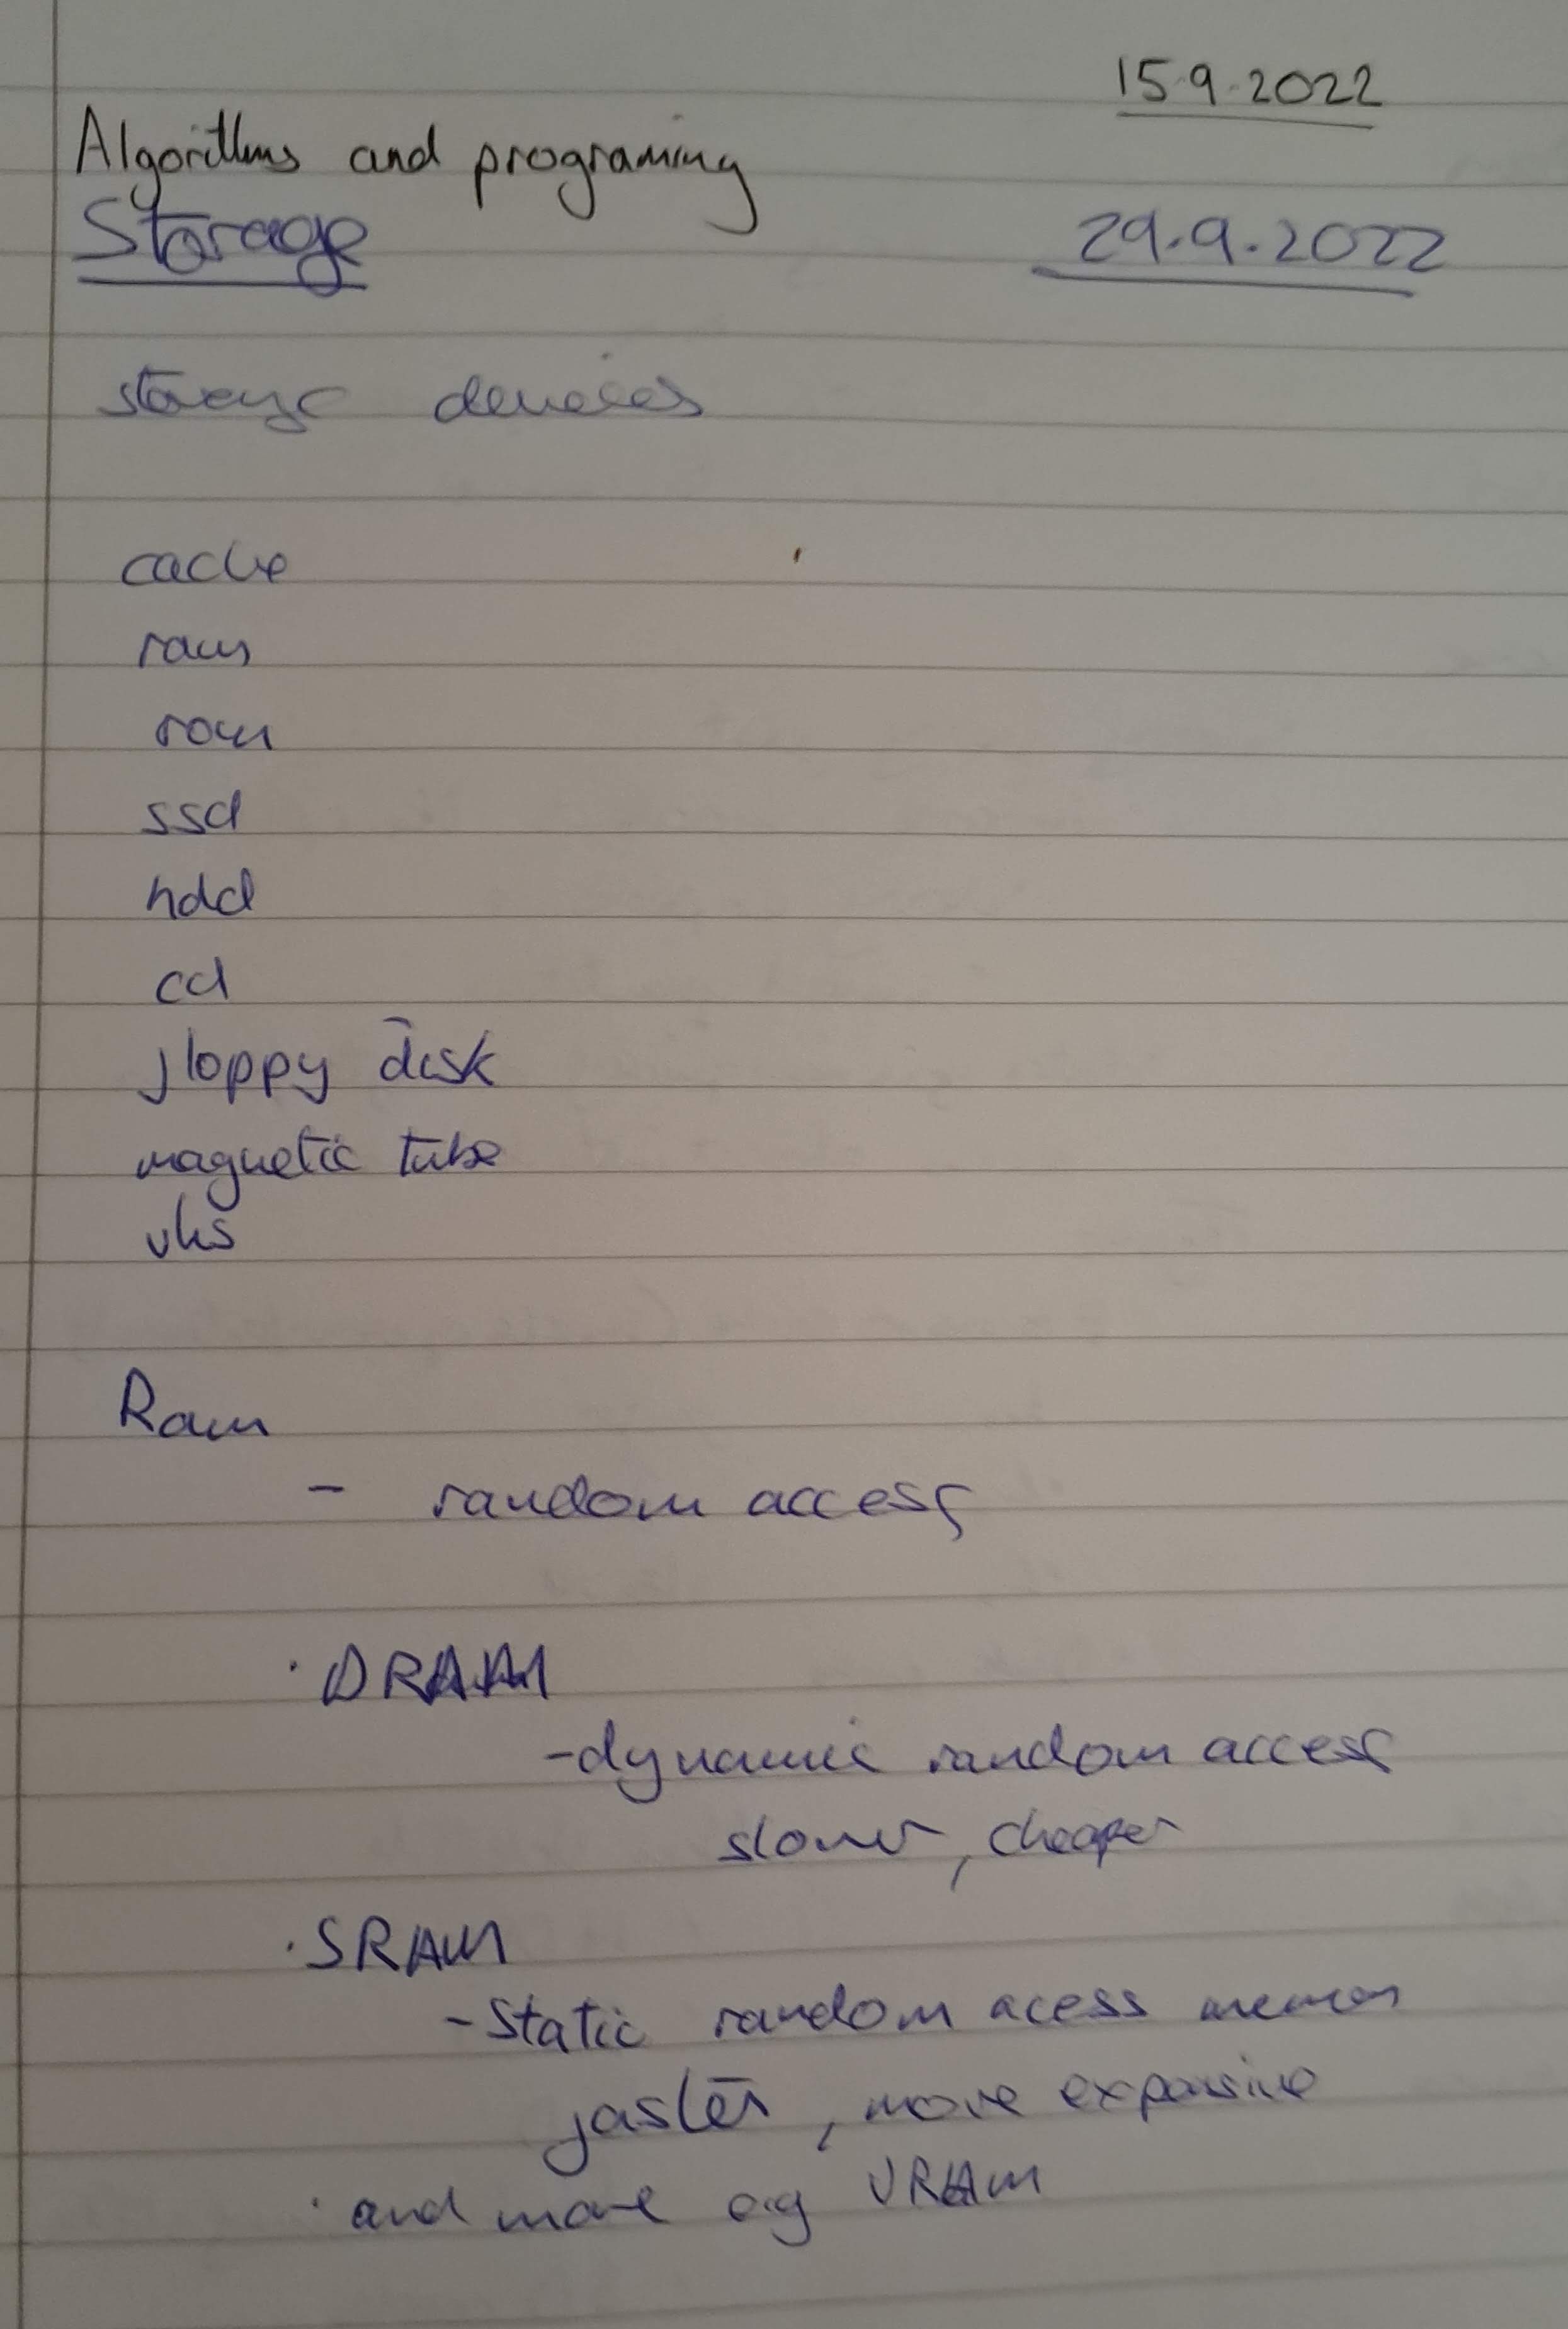 15.9.2022
Algorithms and programing
Storage 29.9.2022
storage devices
cache
ram
rom
ssd
hdd
cd
floppy disk
magnetic tube
vhs
Ram
- random access
· DRAM
- dynamic random access
slower, cheaper
· SRAM
- Static random acess memory
faster, more expansive
· and more e.g VRAM